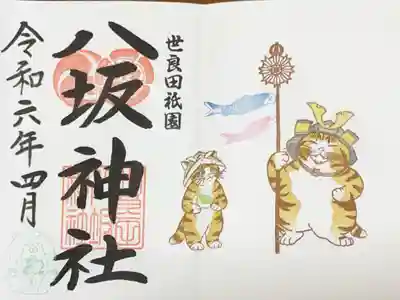 世良田祇園
八坂神社
令和六年四月